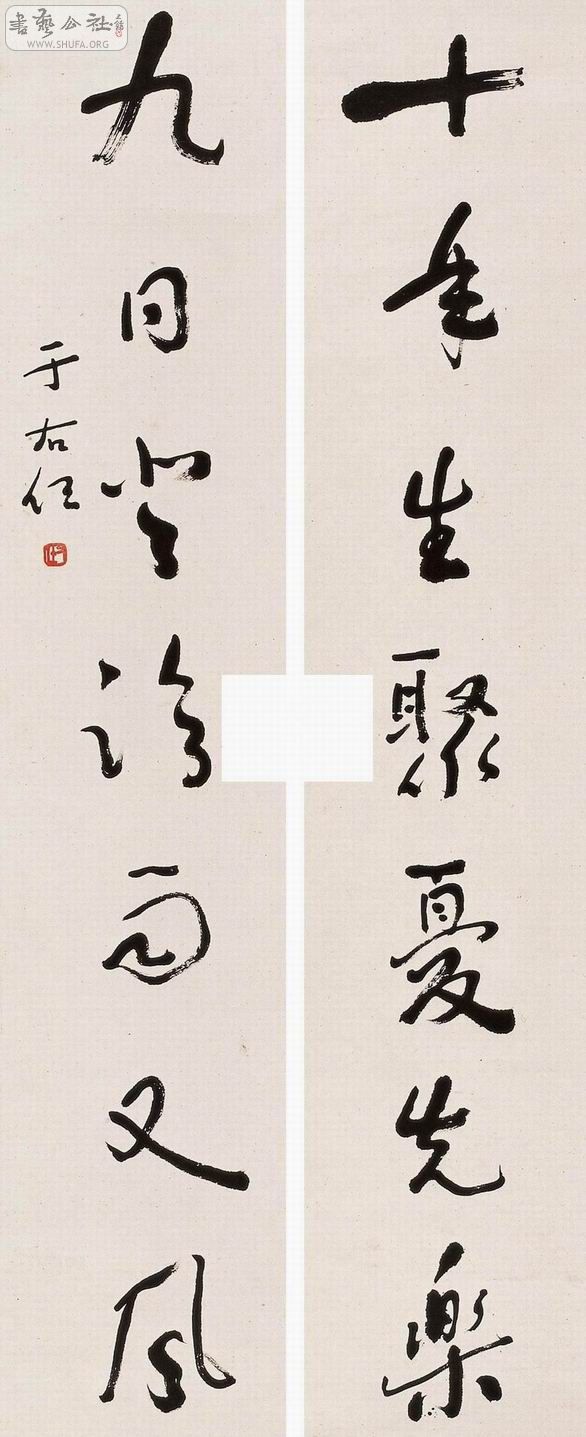 書藝公社
WWW.SHUFA.ORG
十年生聚憂先樂
九日登臨雨又風
于右任